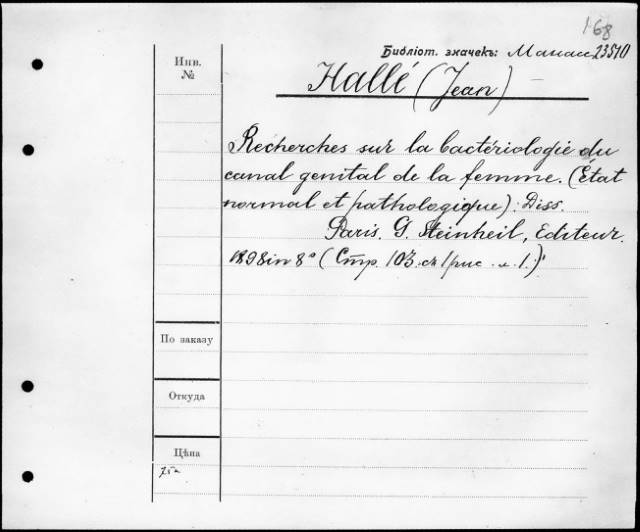 168
Библіот. значекъ: Манас 23510
Инв.
№
Hallé (Jean)
Recherches sur la bactériologie du
canal genital de la femme. (État
normal et pathologique). Diss.
Paris. G Steinheil, Editeur.
1898 in 8° (Стр. 103. съ 1 рис. 1.)
По заказу
Откуда
Цѣна